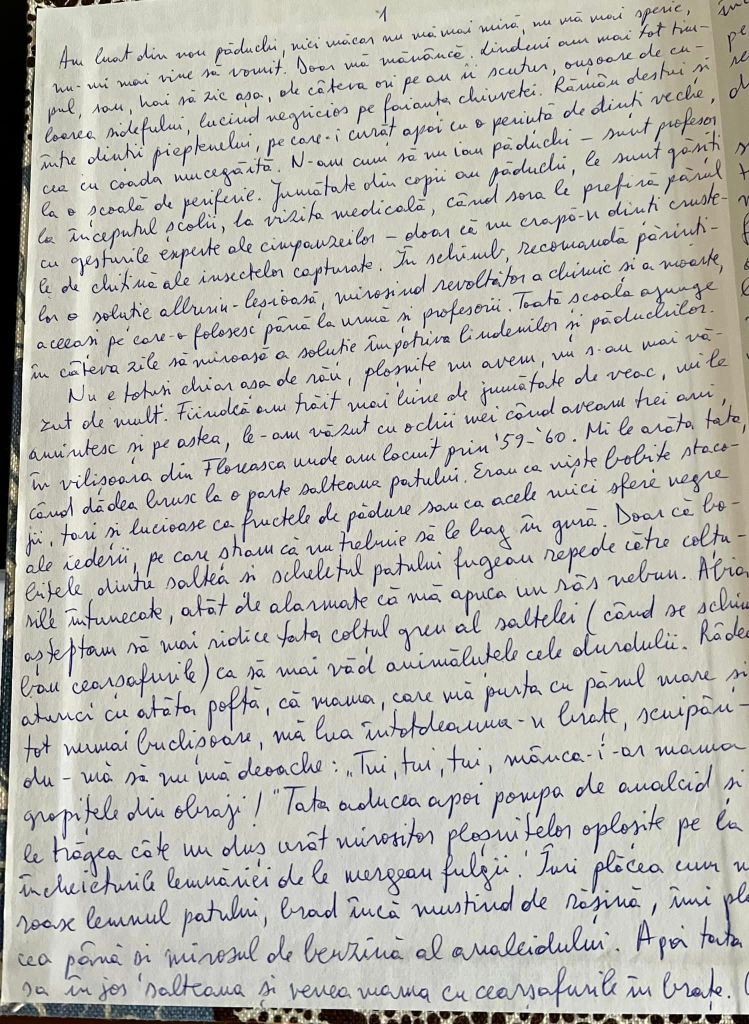 1
Am luat din nou păduchi, nici măcar nu mă mai miră, nu mă mai sperie,
nu-mi mai vine să vomit. Doar mă mănâncă. Lindeni am mai tot tim-
pul, sau, hai să zic așa, de câteva ori pe an îi scutur, oușoare de cu-
loarea sidefului, lucind negricios pe faianța chiuvetei. Rămân destui și
între dinții pieptenelui, pe care-i curăț apoi cu o periuță de dinți veche,
cea cu coada mucegăită. N-am cum să nu iau păduchi – sunt profesor
la o școală de periferie. Jumătate din copii au păduchi, le sunt găsiți
la începutul școlii, la vizita medicală, când sora le prefiră părul
cu gesturile experte ale cimpanzeilor – doar că nu crapă-n dinți cruste-
le de chitină ale insectelor capturate. În schimb, recomandă părinți-
lor o soluție alburiu-leșioasă, mirosind revoltător a chimic și a moarte,
aceeași pe care-o folosesc până la urmă și profesorii. Toată școala ajunge
în câteva zile să miroasă a soluție împotriva lindenilor și păduchilor.
Nu e totuși chiar așa de rău, ploșnițe nu avem, nu s-au mai vă-
zut de mult. Fiindcă am trăit mai bine de jumătate de veac, mi le
amintesc și pe astea, le-am văzut cu ochii mei când aveam trei ani,
în vilișoara din Floreasca unde am locuit prin '59-'60. Mi le arăta tata,
când dădea brusc la o parte salteaua patului. Erau ca niște bobițe staco-
jii, tari și lucioase ca fructele de pădure sau ca acele mici sfere negre
ale iederii, pe care știam că nu trebuie să le bag în gură. Doar că bo-
bițele dintre saltea și scheletul patului fugeau repede către coltu-
rile întunecate, atât de alarmate că mă apuca un râs nebun. Abia
așteptam să mai ridice tata colțul greu al saltelei (când se schim
bau cearșafurile) ca să mai văd animăluțele cele durdulii. Râdea
atunci cu atâta poftă, că mama, care mă purta cu părul mare și
tot numai buclișoare, mă lua întotdeauna-n brațe, scuipân-
du-mă să nu mă deoache: „Tui, tui, tui, mânca-i-ar mama
gropițele din obraji!" Tata aducea apoi pompa de analcid și
le trăgea câte un duș urât mirositor ploșnițelor oploșite pe la
încheieturile lemnăriei de le mergeau fulgii. Îmi plăcea cum
roase lemnul patului, brad încă mustind de rășină, îmi plă
cea până și mirosul de benzină al analcidului. Apoi tata
sa în jos salteaua și venea mama cu cearșafurile în brațe.